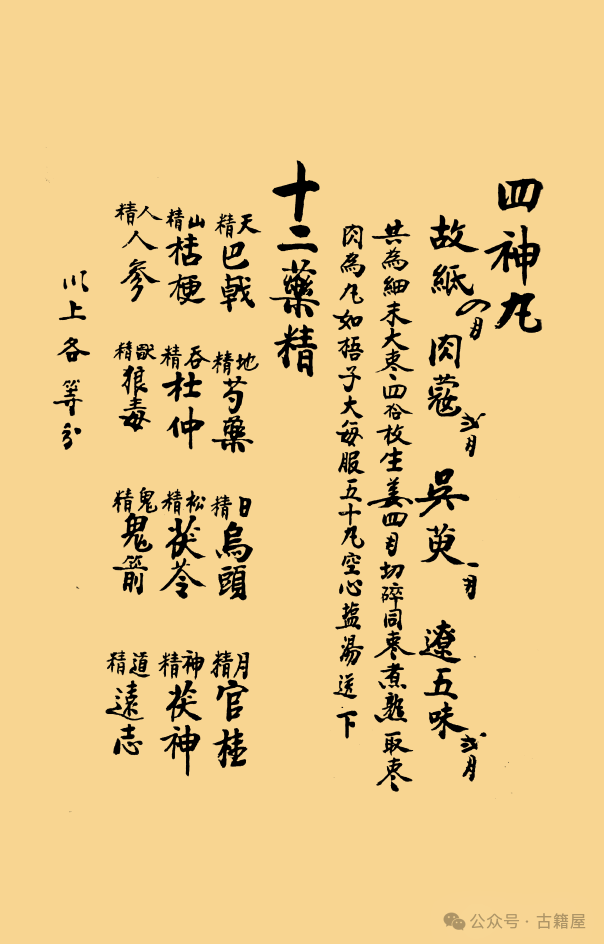 四神丸
故紙四両 肉蔻弍両 吳萸一両 遼五味弍両
共為細末大棗四拾枚生姜四両切碎同棗煮熟取棗
肉為丸如梧子大每服五十丸空心盐湯送下
十二藥精
天精巴戟 地精芍藥 日精烏頭 月精官桂
山精桔梗 吞精杜仲 松精茯苓 神精茯神
人精人參 獸精狼毒 鬼精鬼箭 道精遠志
以上各等分
公众号·古籍屋